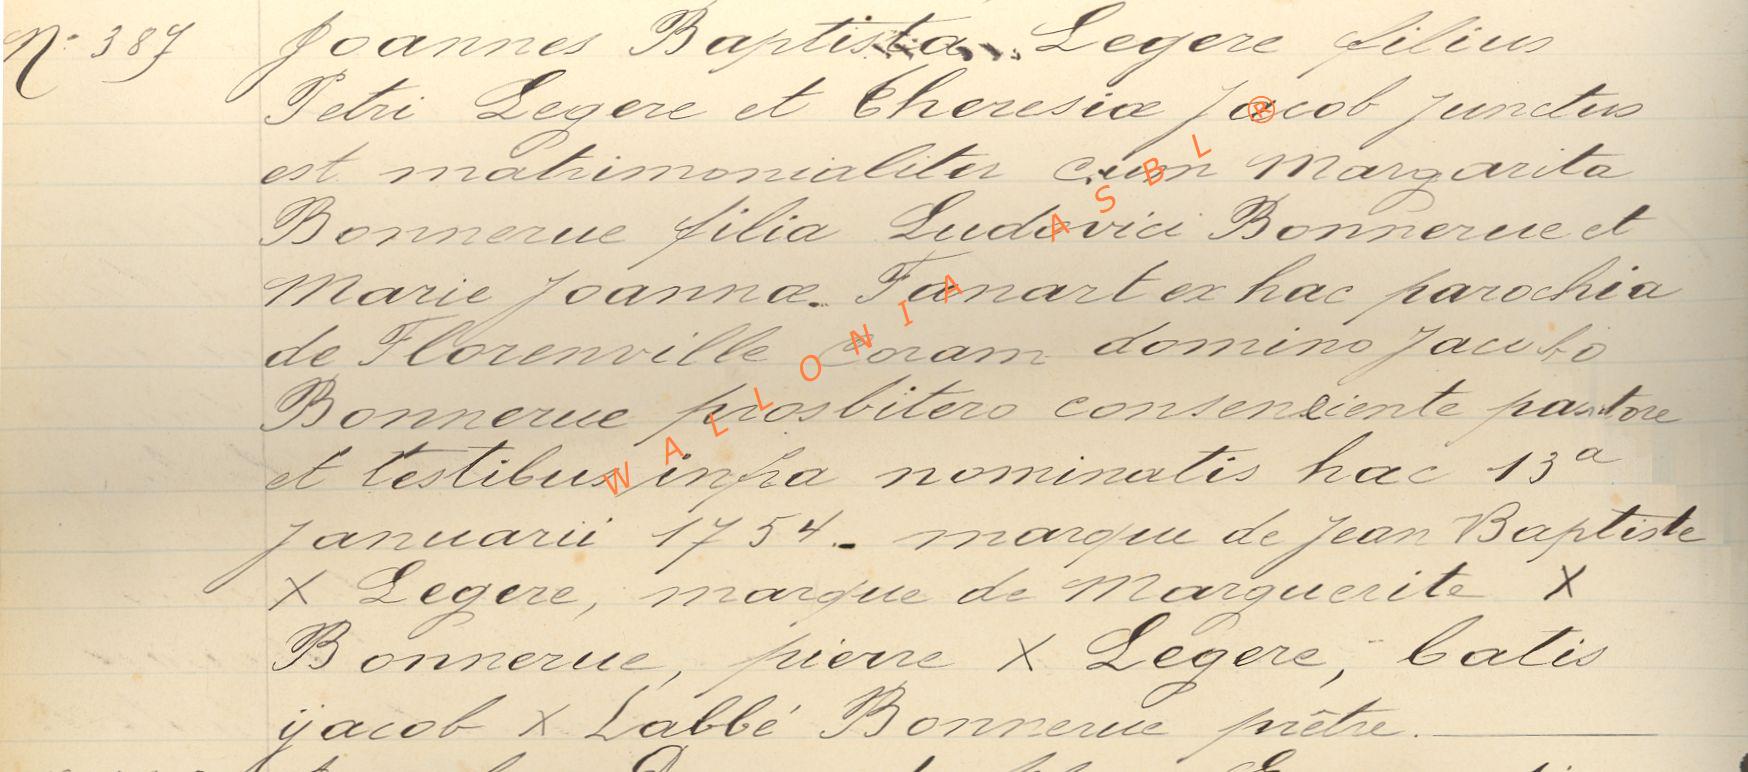 N° 387 Joannes Baptista Legere filius
Petri Legere et Theresiæ Jacob junctus
est matrimonialiter cum Margarita
Bonnerue filia Ludovici Bonnerue et
Marie Joannæ. Fanart ex hac parochia
de Florenville Coram domino Jacobo
Bonnerue prosbitero consenciente pastore
et testibus infra nominatis hac 13a
Januarii 1754. marque de Jean Baptiste
X Legere, marque de Marguerite X
Bonnerue, pierre X Legere, batis
ijacob X Labbé Bonnerue prêtre.
WALLONIA ASBL ®